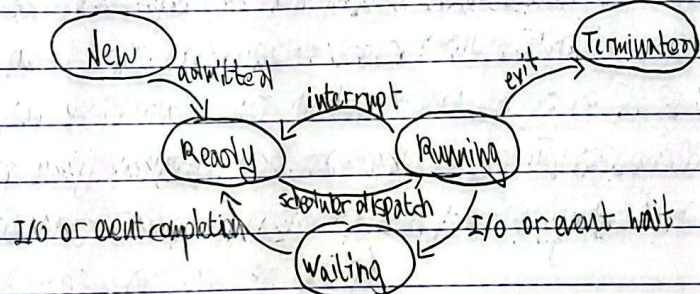 New
Terminated
admitted
exit
interrupt
Ready
Running
scheduler dispatch
I/O or event completion
I/O or event wait
Waiting